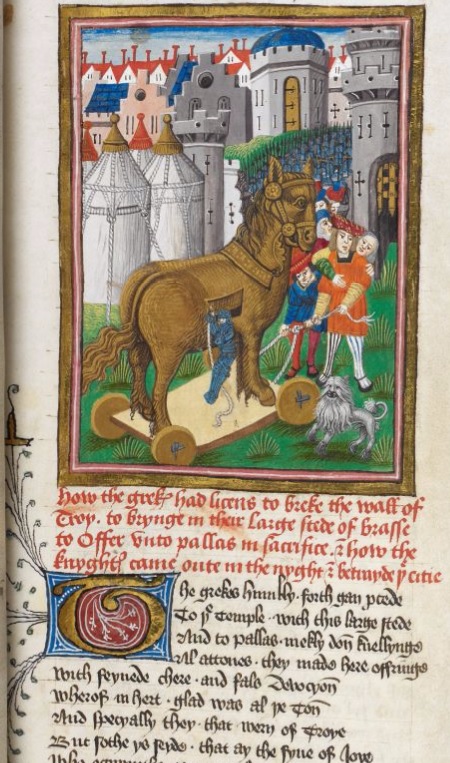 how the grekꝭ had licens to breke the wall of
Troy . to brynge in their large stede of brasse
to Offer vnto pallas in sacrifice . & how the
knyghtꝭ came oute in the nyght & betrayde yͤ citie
The grekes humbly . forth gan pcede
To yͤ Temple . with this large stede
And to pallas . mekly don knellynge
Al attones . they made here offrynge
with feynede chere . and fals devocyon
wherof in hert . glad was al yͤ Ton
And specyally they that wern of Troye
But sothe ys seyde . that ay the fyne of Joye